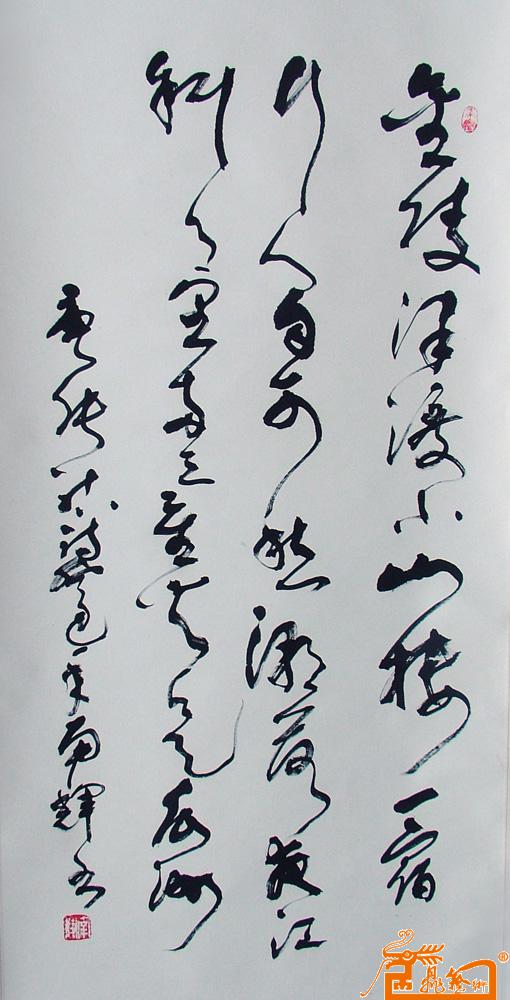 金陵津渡小山楼一宿
行人自可愁潮落夜江
斜月里两三星火是瓜洲
唐张祜诗南辉书